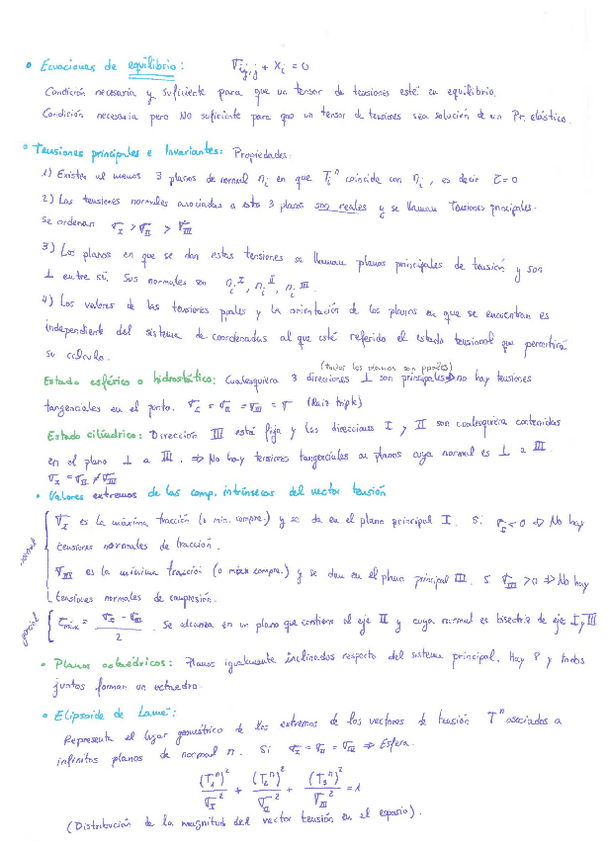 • Ecuaciones de equilibrio: σij,j + Xi = 0
Condición necesaria y suficiente para que un tensor de tensiones esté en equilibrio.
Condición necesaria pero NO suficiente para que un tensor de tensiones sea solución de un Pr. elástico.
• Tensiones principales e Invariantes: Propiedades:
1) Existen al menos 3 planos de normal ni en que Ti^n coincide con ni, es decir τ=0
2) Las tensiones normales asociadas a esto 3 planos son reales y se llaman Tensiones principales.
Se ordenan σI > σII > σIII
3) Los planos en que se dan estas tensiones se llaman planos principales de tensión y son
⊥ entre sí. Sus normales son ni^I, ni^II, ni^III.
4) Los valores de las tensiones ppales y la orientación de los planos en que se encuentran es
independiente del sistema de coordenadas al que esté referido el estado tensional que permitirá
su cálculo.
(todos los planos son ppales)
Estado esférico o hidrostático: Cualesquiera 3 direcciones ⊥ son principales ⇒ no hay tensiones
tangenciales en el punto. σI = σII = σIII = σ (Raíz triple)
Estado cilíndrico: Dirección III está fija y las direcciones I y II son cualesquiera contenidas
en el plano ⊥ a III. ⇒ No hay tensiones tangenciales en planos cuya normal es ⊥ a III.
σI = σII ≠ σIII
• Valores extremos de las comp. intrínsecas del vector tensión
normal
σI es la máxima tracción (o mín. compre.) y se da en el plano principal I. Si σI<0 ⇒ No hay
tensiones normales de tracción.
σIII es la mínima tracción (o máx compre.) y se dan en el plano principal III. Si σIII >0 ⇒ No hay
tensiones normales de compresión.
τmax = (σI - σIII)/2. Se alcanza en un plano que contiene al eje II y cuya normal es bisectriz de ejes I y III
• Planos octaédricos: Planos igualmente inclinados respecto del sistema principal. Hay 8 y todos
juntos forman un octaedro.
• Elipsoide de Lamé:
Representa el lugar geométrico de los extremos de los vectores de tensión T^n asociados a
infinitos planos de normal n. Si σI = σII = σIII ⇒ Esfera.
(T1^n)²/σI² + (T2^n)²/σII² + (T3^n)²/σIII² = 1
(Distribución de la magnitud del vector tensión en el espacio).